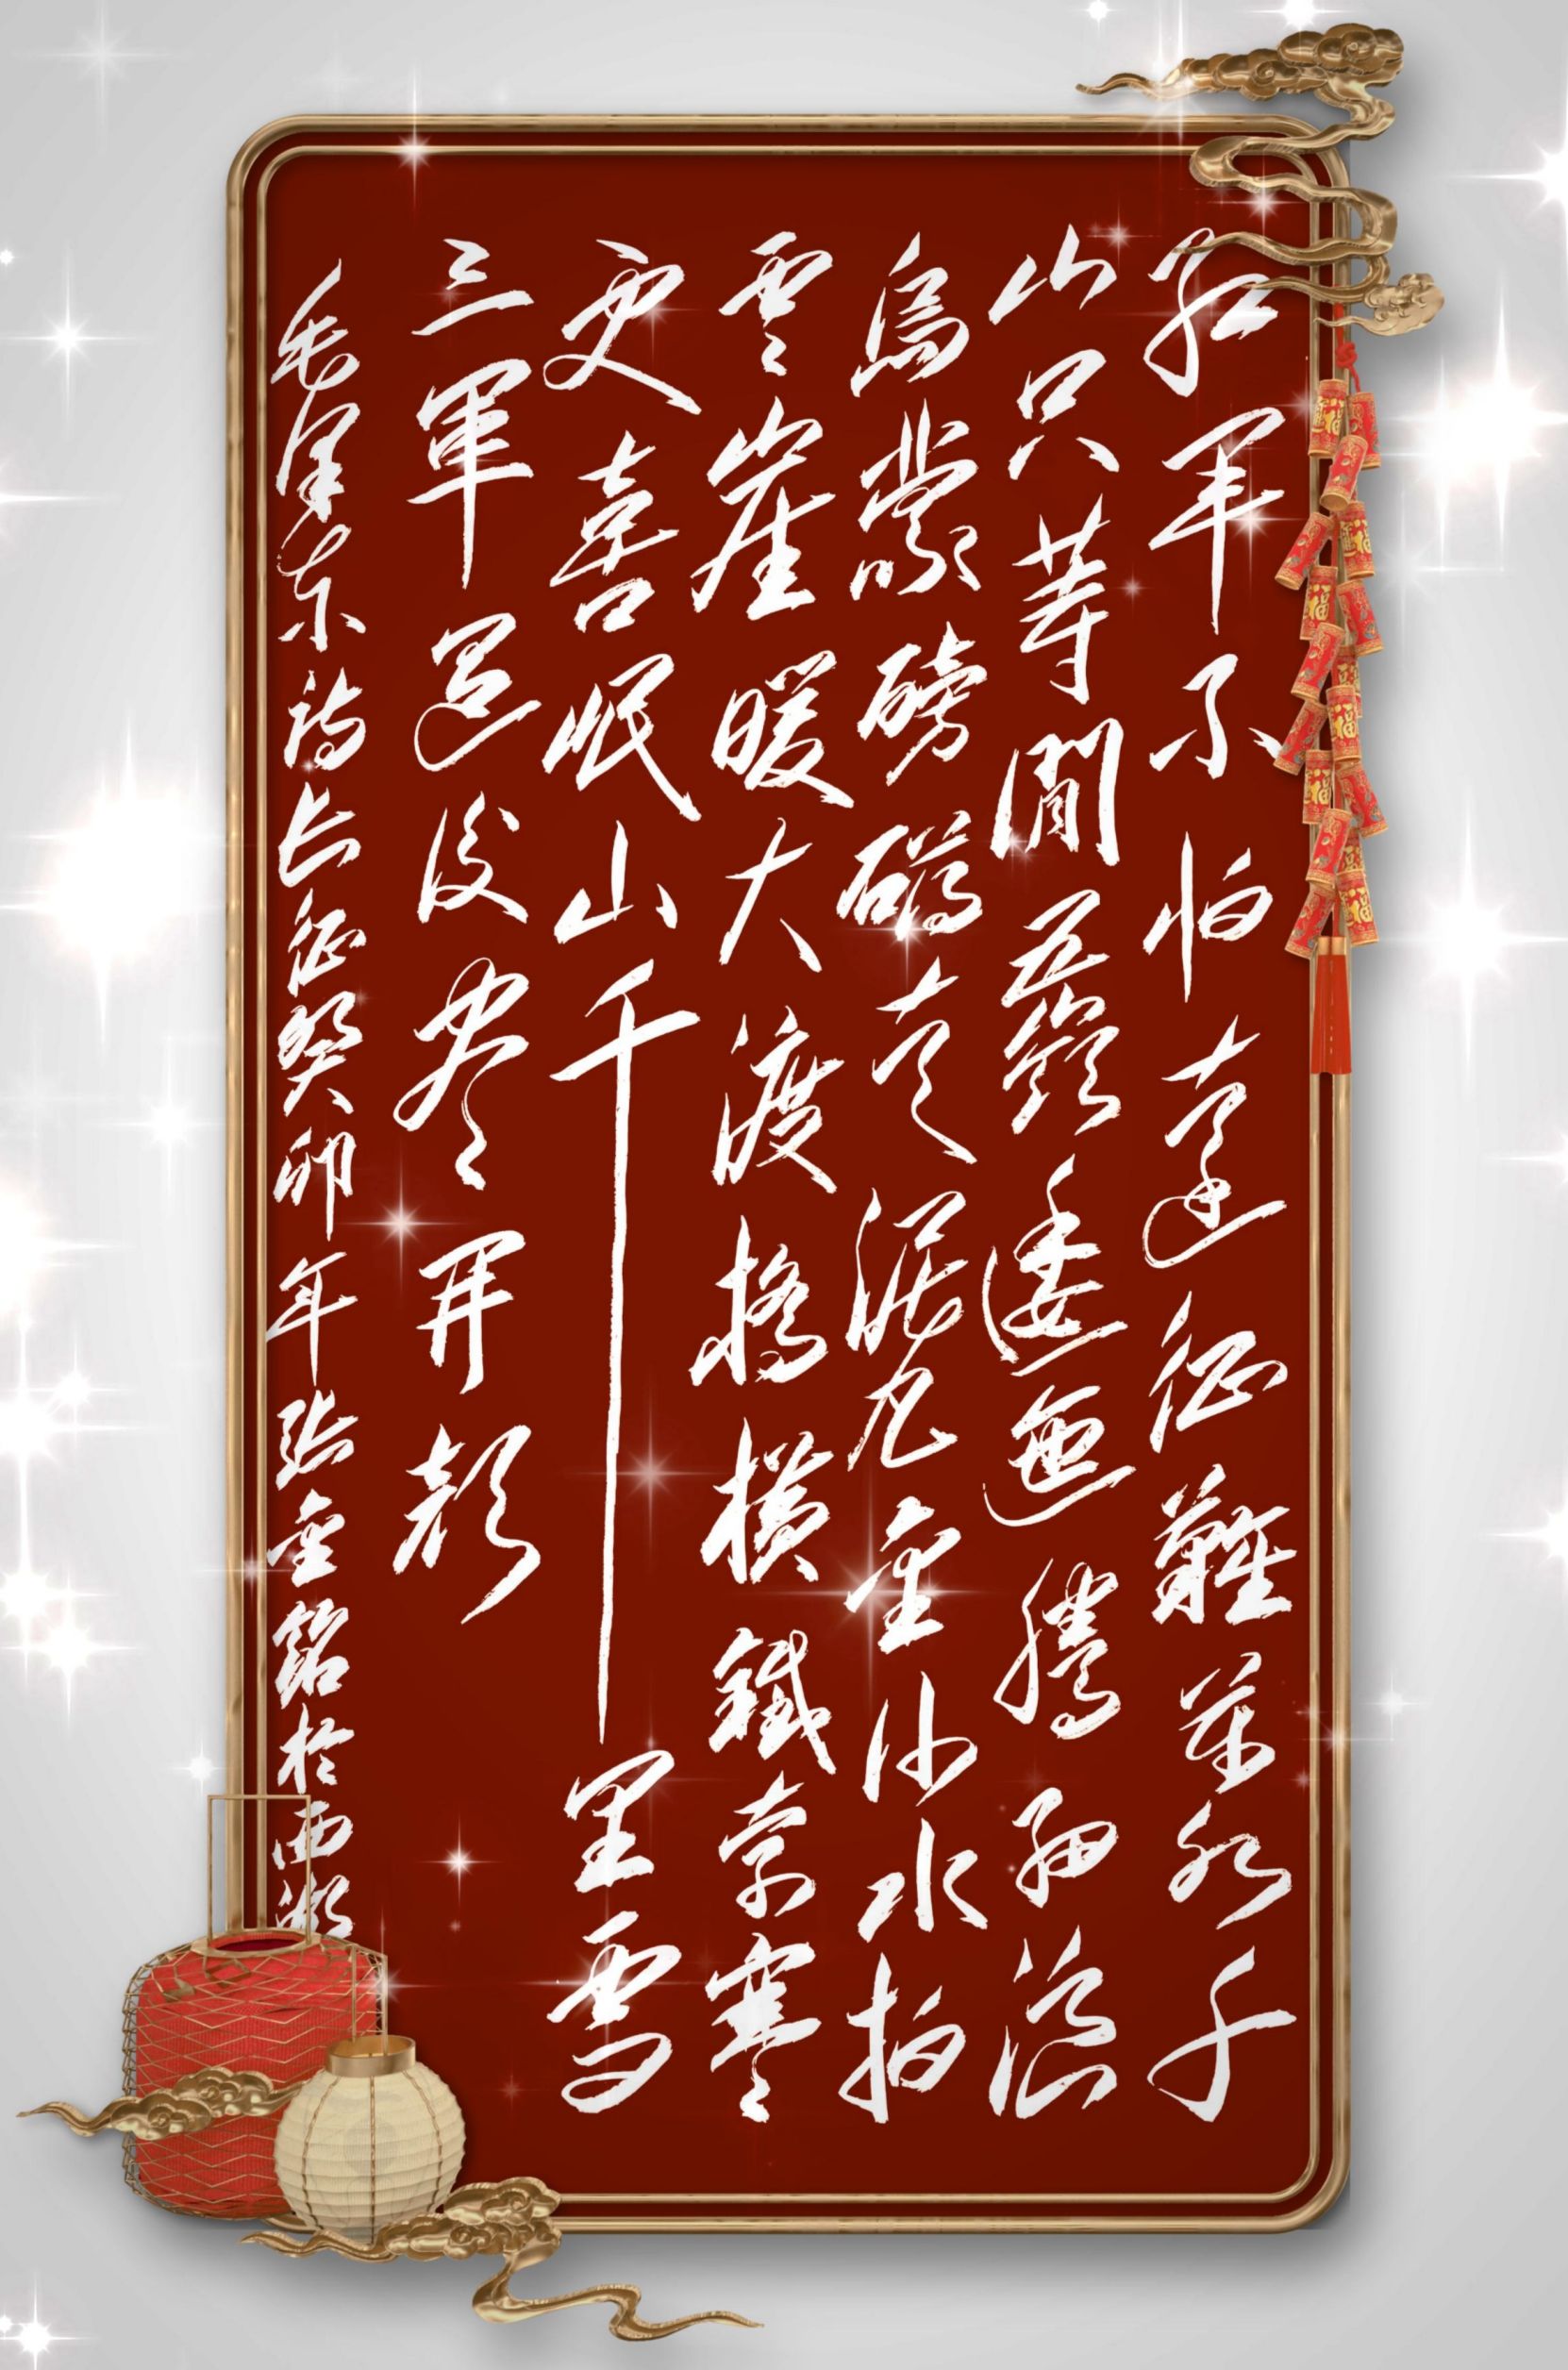 紅軍不怕遠征難萬水千
山只等閒五嶺逶迤騰細浪
烏蒙磅礴走泥丸金沙水拍
雲崖暖大渡橋橫鐵索寒
更喜岷山千里雪
三軍過後盡開顏
毛澤东詩長征癸卯年張金銘於西湖